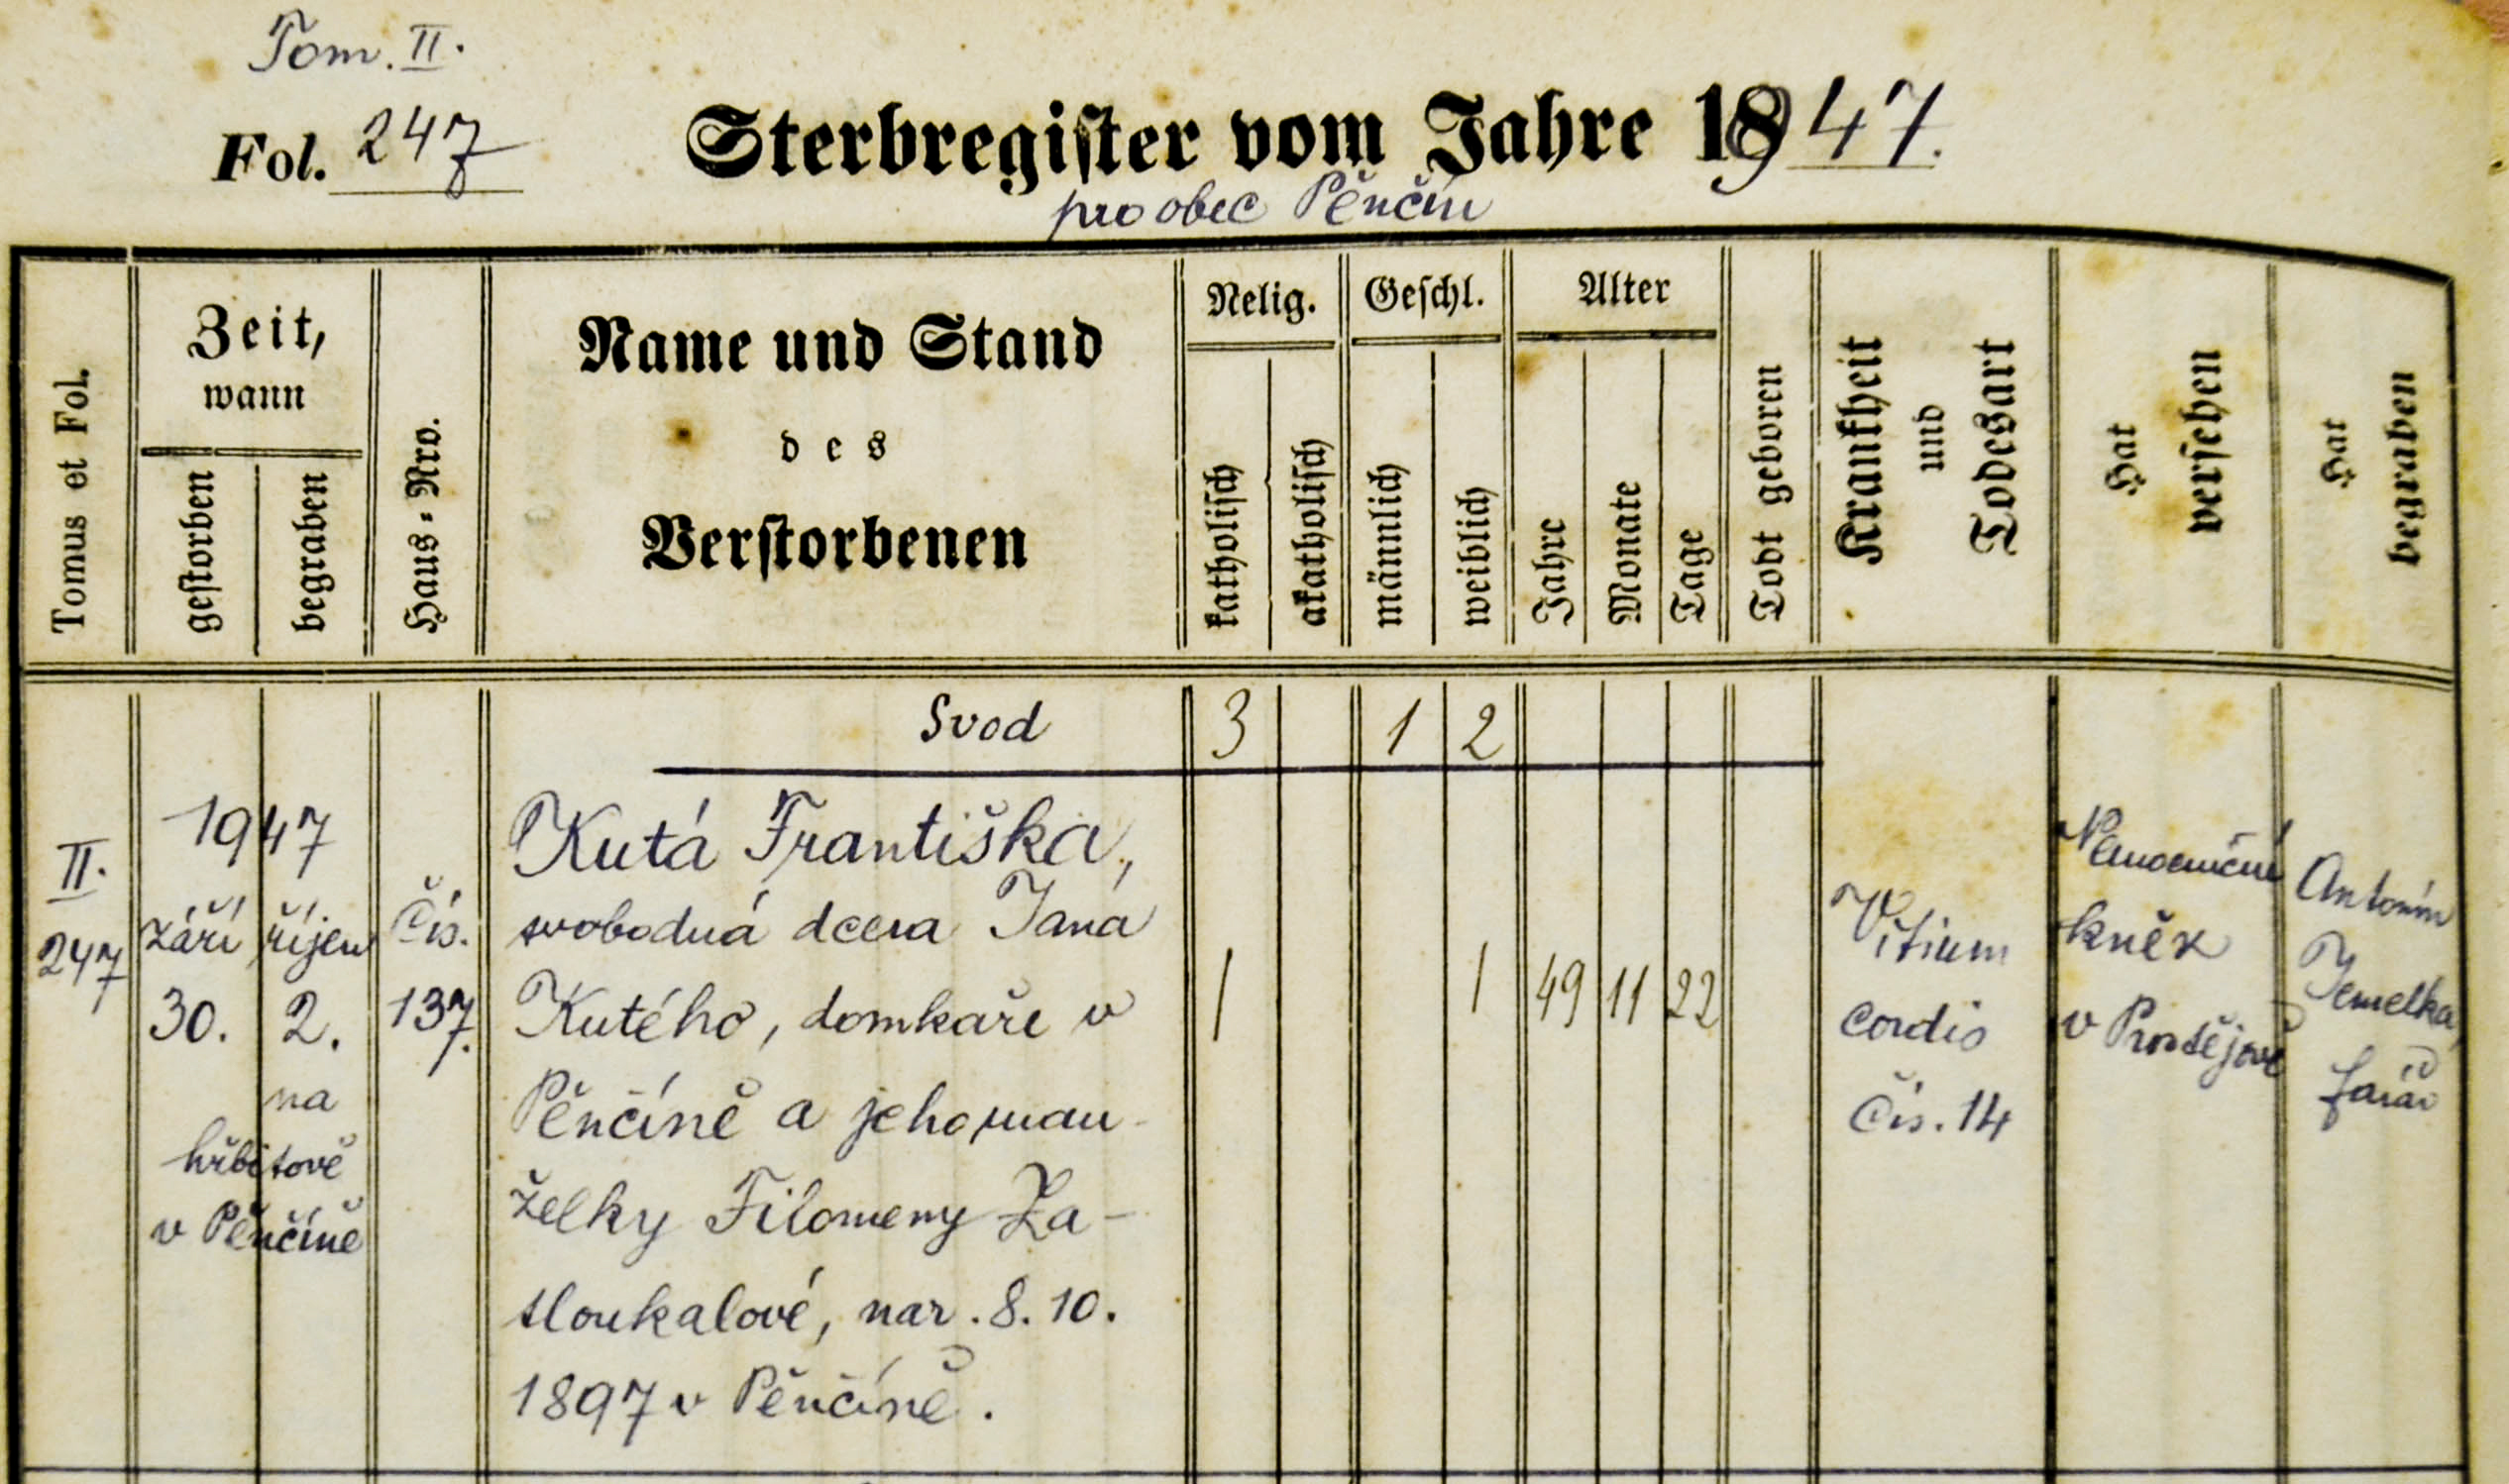 Tom. II.
Fol. 247
Sterbregister vom Jahre 1947.
pro obec Pěnčín
Tomus et Fol.
Zeit,
wann
gestorben
begraben
Haus-Nro.
Name und Stand
des
Verstorbenen
Relig.
katholisch
akatholisch
Geschl.
männlich
weiblich
Alter
Jahre
Monate
Tage
Todt geboren
Krankheit
und
Todesart
Hat
versehen
Hat
begraben
Svod 3 1 2
II.
247
1947
září říjen
30. 2.
na
hřbitově
v Pěnčíně
Čís.
137.
Kutá Františka,
svobodná dcera Jana
Kutého, domkaře v
Pěnčíně a jeho man-
želky Filomeny Za-
tloukalové, nar. 8. 10.
1897 v Pěnčíně.
1 1 49 11 22
Vitium
cordis
Čís. 14
Nemocniční
kněz
v Prostějově
Antonín
Jemelka,
farář